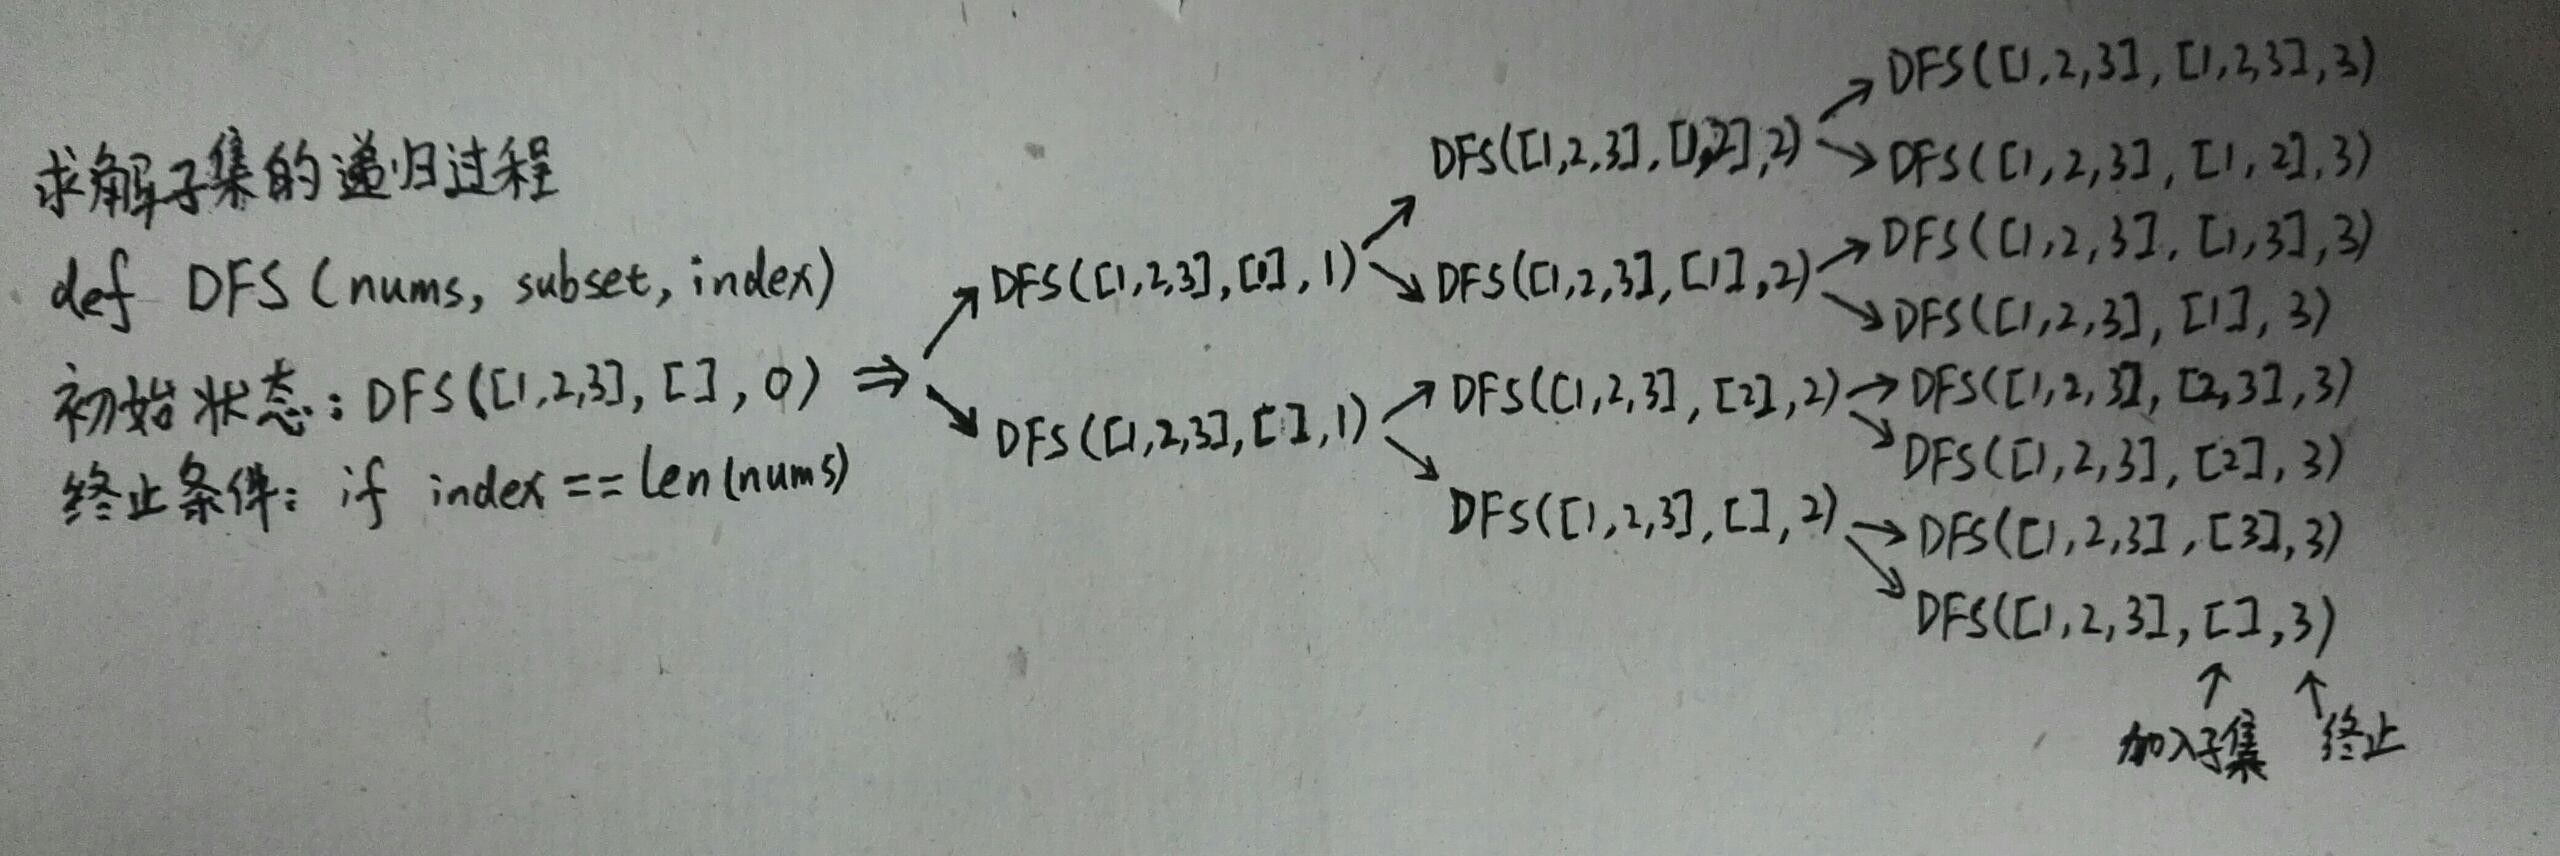 求解子集的递归过程
def DFS(nums, subset, index)
初始状态：DFS([1,2,3], [], 0) ⇒
终止条件：if index == len(nums)
DFS([1,2,3], [1], 1)
DFS([1,2,3], [], 1)
DFS([1,2,3], [1,2], 2)
DFS([1,2,3], [1], 2)
DFS([1,2,3], [2], 2)
DFS([1,2,3], [], 2)
DFS([1,2,3], [1,2,3], 3)
DFS([1,2,3], [1,2], 3)
DFS([1,2,3], [1,3], 3)
DFS([1,2,3], [1], 3)
DFS([1,2,3], [2,3], 3)
DFS([1,2,3], [2], 3)
DFS([1,2,3], [3], 3)
DFS([1,2,3], [], 3)
加入子集 终止